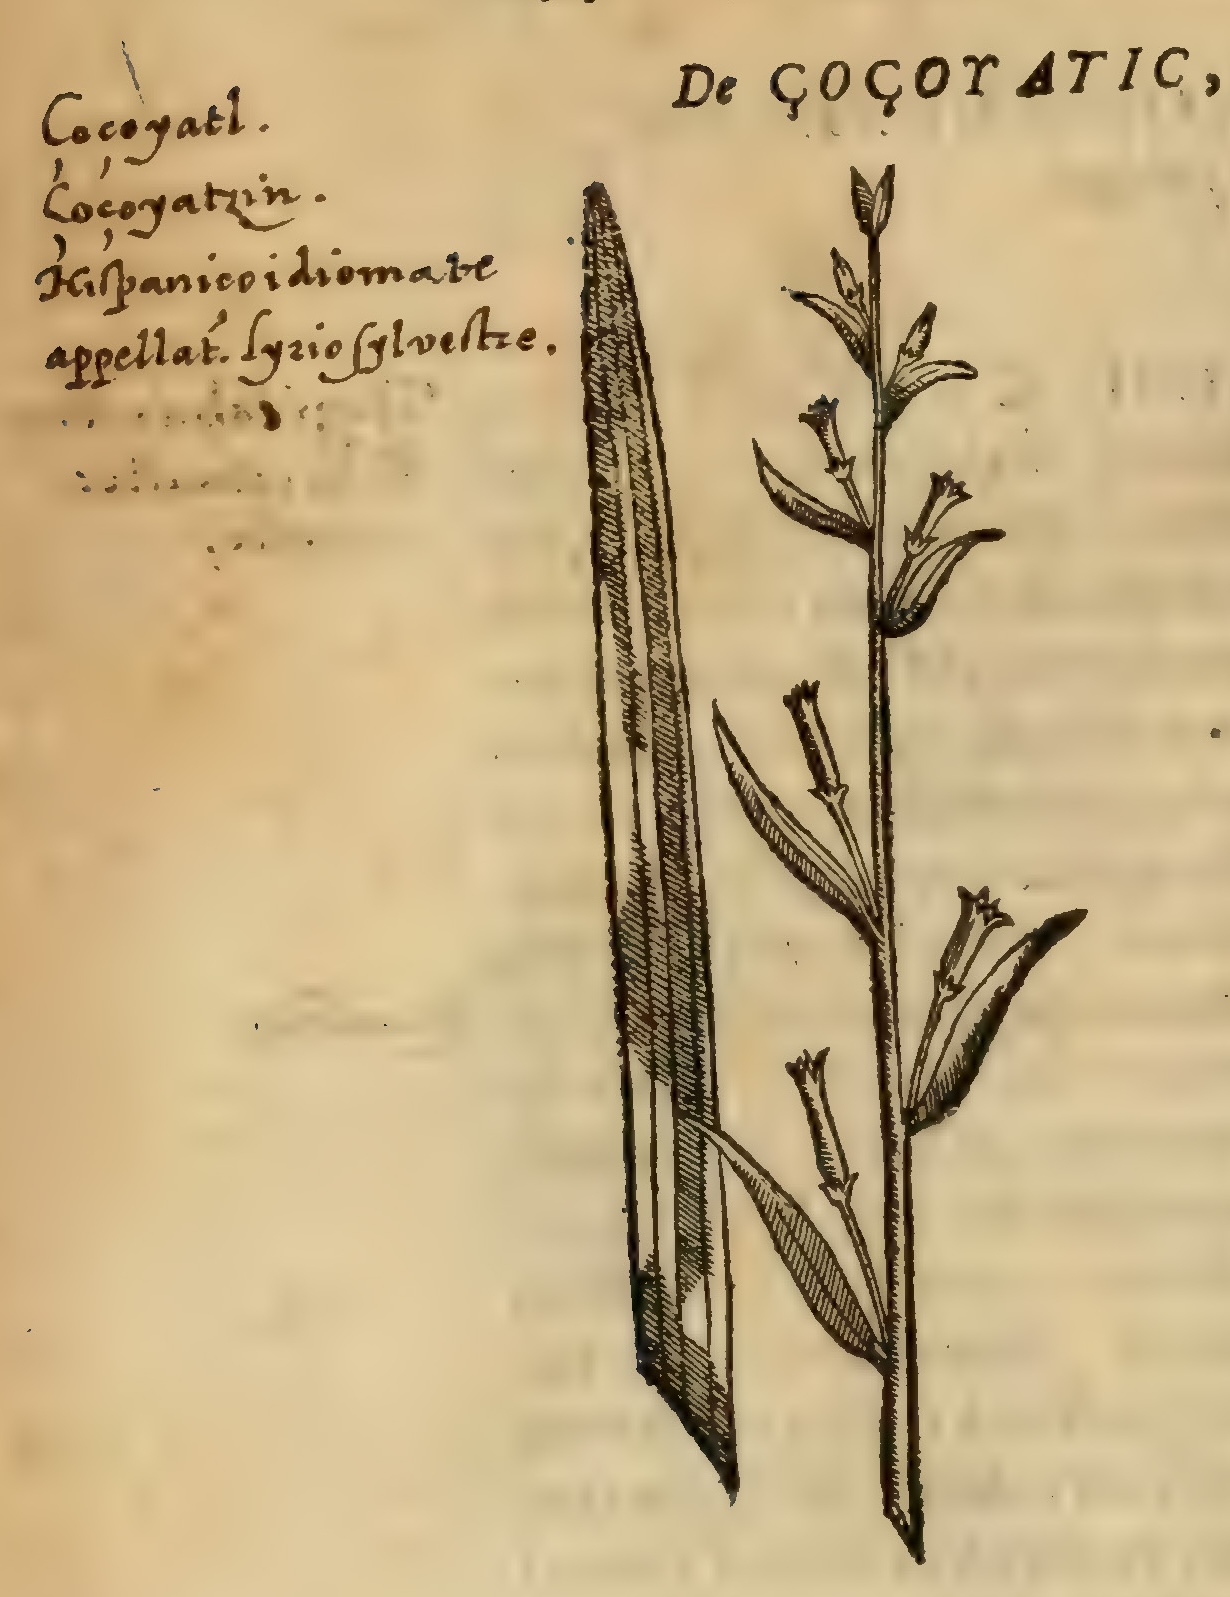 De ÇOÇOYATIC,
Çoçoyatl.
Çoçoyatzin.
Hispanico idiomate
appellat. lyrio sylvestre.